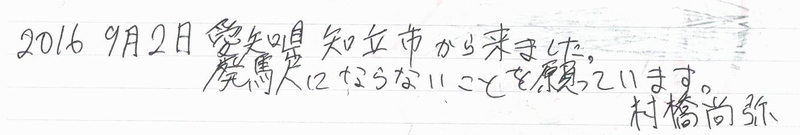 2016 9月2日 愛知県 知立市から来ました。
廃駅にならないことを願っています。
村橋尚弥